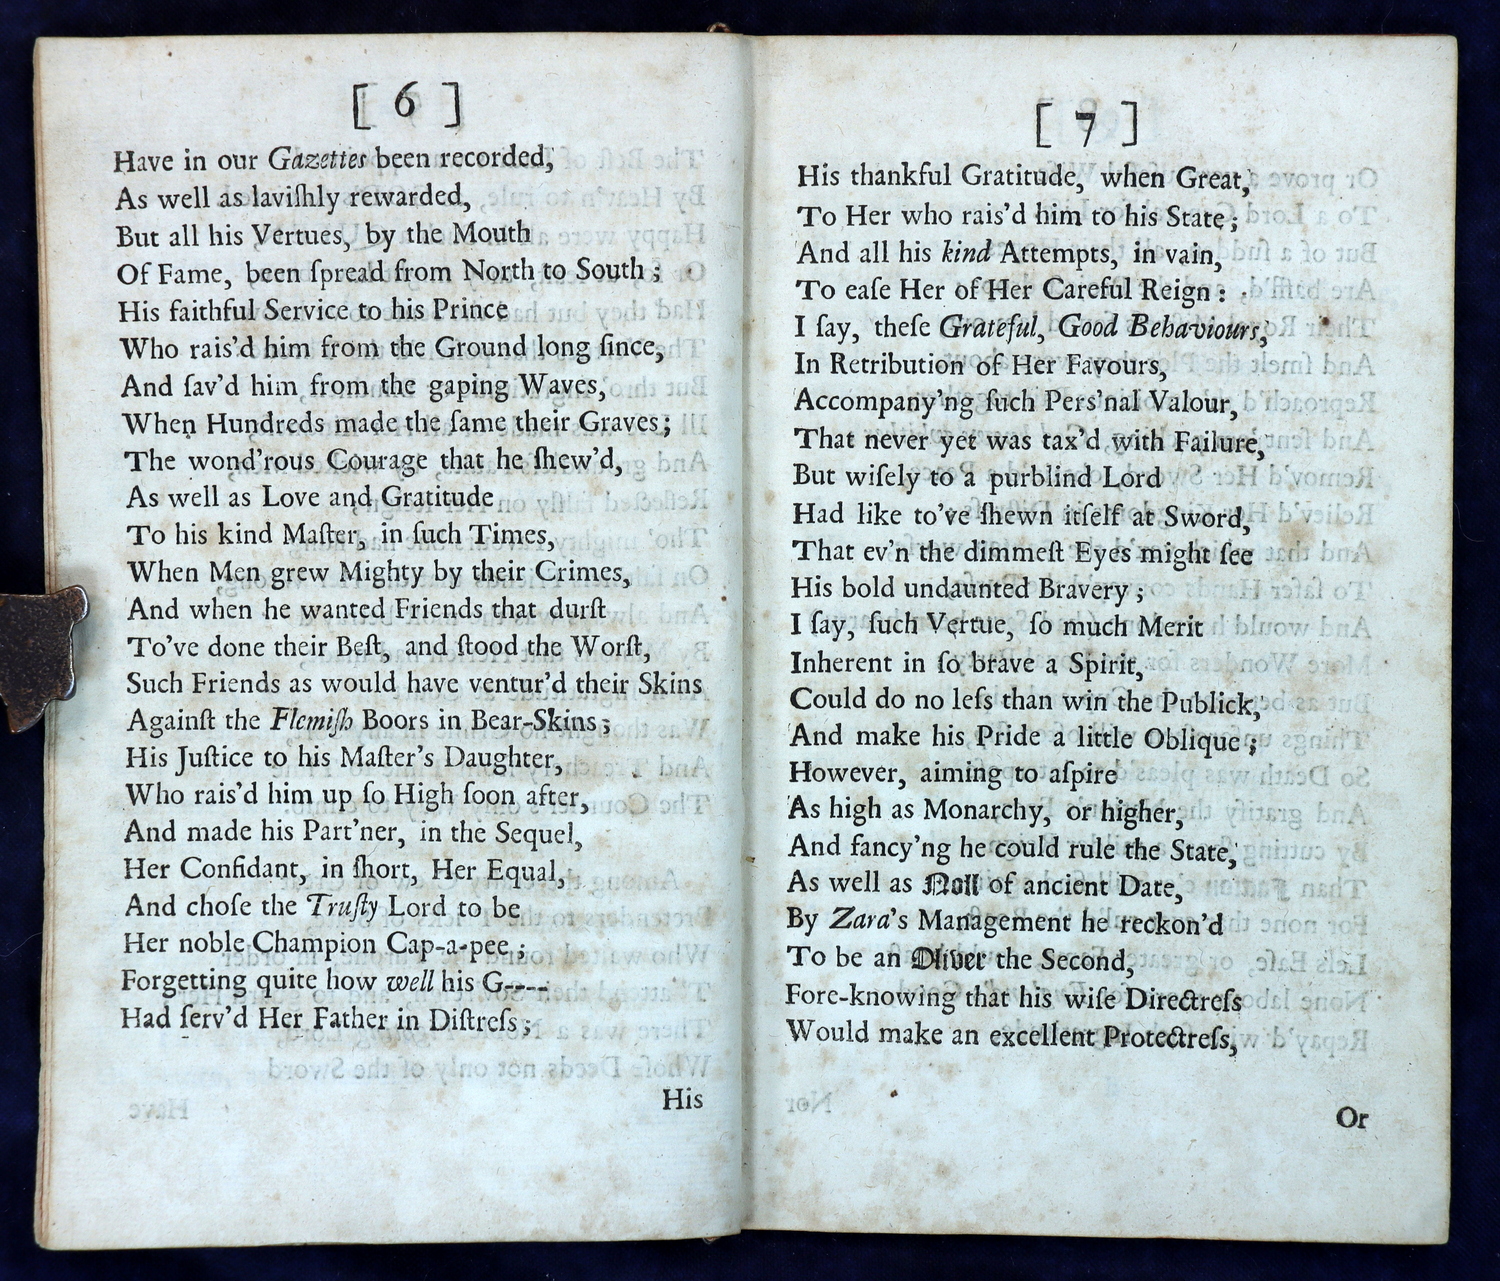 [ 6 ]
Have in our Gazettes been recorded,
As well as laviſhly rewarded,
But all his Vertues, by the Mouth
Of Fame, been ſpread from North to South ;
His faithful Service to his Prince
Who rais'd him from the Ground long ſince,
And ſav'd him from the gaping Waves,
When Hundreds made the ſame their Graves ;
The wond'rous Courage that he ſhew'd,
As well as Love and Gratitude
To his kind Maſter, in ſuch Times,
When Men grew Mighty by their Crimes,
And when he wanted Friends that durſt
To've done their Beſt, and ſtood the Worſt,
Such Friends as would have ventur'd their Skins
Againſt the Flemiſh Boors in Bear-Skins ;
His Juſtice to his Maſter's Daughter,
Who rais'd him up ſo High ſoon after,
And made his Part'ner, in the Sequel,
Her Confidant, in ſhort, Her Equal,
And choſe the Truſty Lord to be
Her noble Champion Cap-a-pee ;
Forgetting quite how well his G----
Had ſerv'd Her Father in Diſtreſs ;
His
[ 7 ]
His thankful Gratitude, when Great,
To Her who rais'd him to his State ;
And all his kind Attempts, in vain,
To eaſe Her of Her Careful Reign :
I ſay, theſe Grateful, Good Behaviours,
In Retribution of Her Favours,
Accompany'ng ſuch Pers'nal Valour,
That never yet was tax'd with Failure,
But wiſely to a purblind Lord
Had like to've ſhewn itſelf at Sword,
That ev'n the dimmeſt Eyes might ſee
His bold undaunted Bravery ;
I ſay, ſuch Vertue, ſo much Merit
Inherent in ſo brave a Spirit,
Could do no leſs than win the Publick,
And make his Pride a little Oblique ;
However, aiming to aſpire
As high as Monarchy, or higher,
And fancy'ng he could rule the State,
As well as Noll of ancient Date,
By Zara's Management he reckon'd
To be an Oliver the Second,
Fore-knowing that his wiſe Directreſs
Would make an excellent Protectreſs,
Or